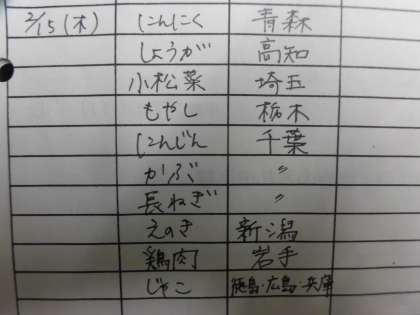 2/15(木) にんにく 青森
しょうが 高知
小松菜 埼玉
もやし 栃木
にんじん 千葉
かぶ 〃
長ねぎ 〃
えのき 新潟
鶏肉 岩手
じゃこ 徳島・広島・兵庫